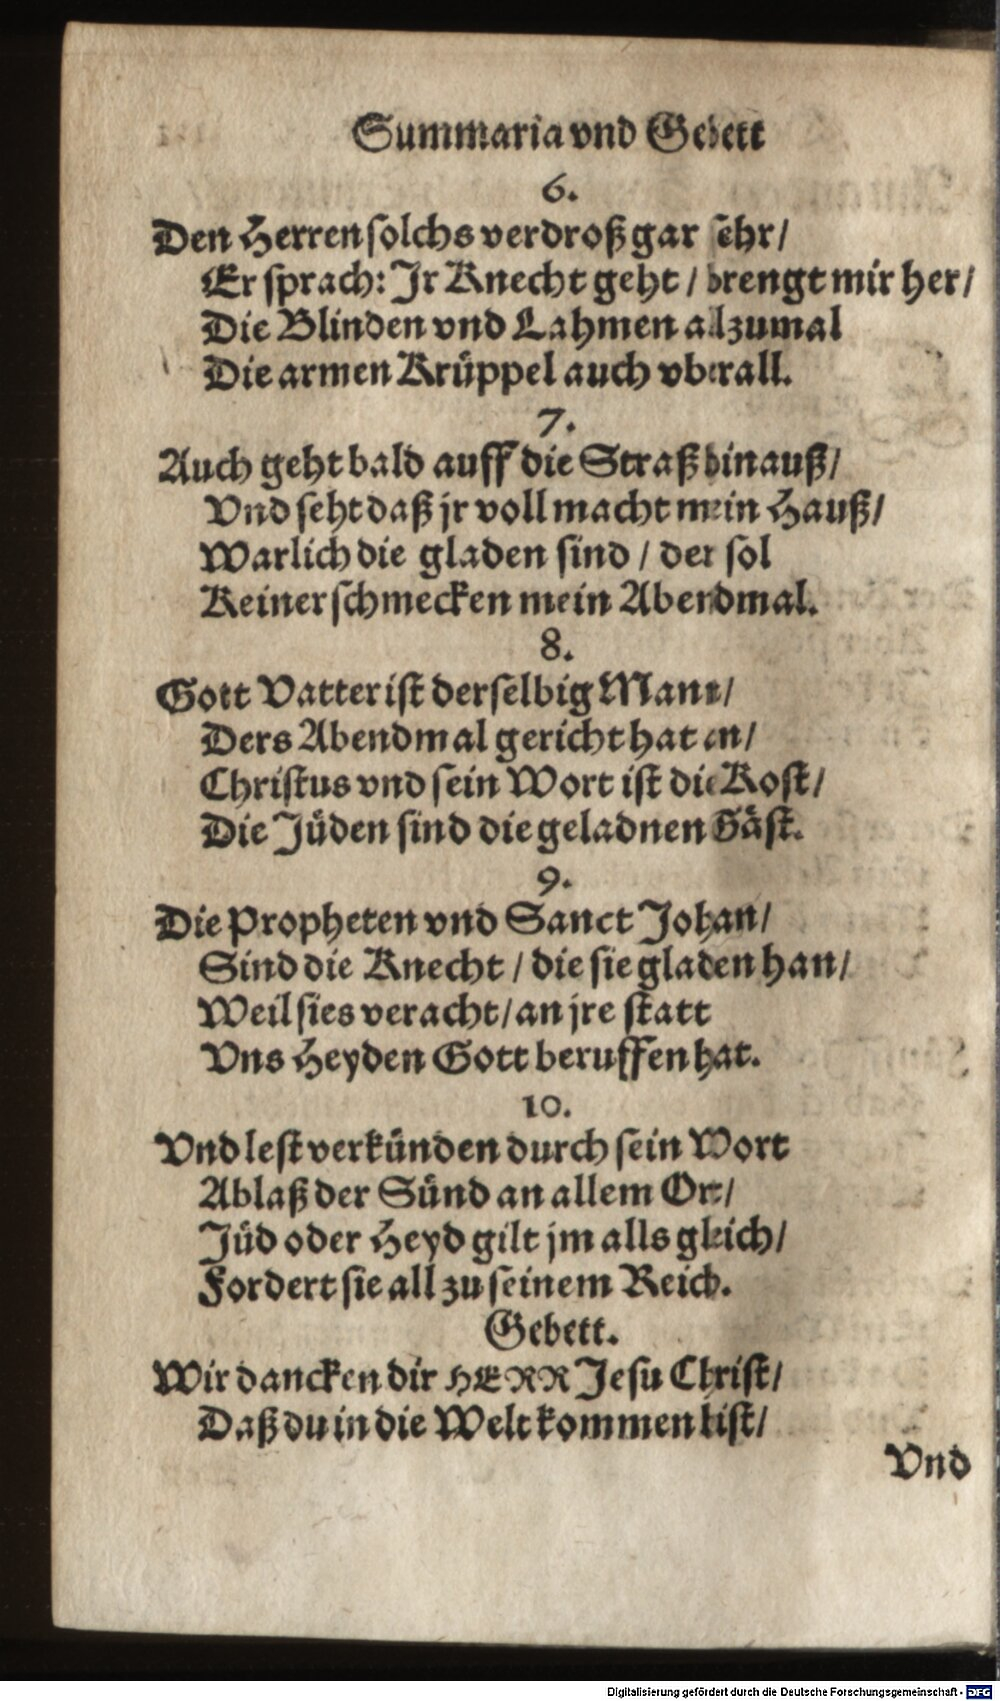 Summaria vnd Gebett
6.
Den Herren solchs verdroß gar sehr/
Er sprach: Jr Knecht geht / brengt mir her/
Die Blinden vnd Lahmen allzumal
Die armen Krüppel auch vberall.
7.
Auch geht bald auff die Straß hinauß/
Vnd seht daß jr voll macht mein Hauß/
Warlich die gladen sind / der sol
Keiner schmecken mein Abendmal.
8.
Gott Vatter ist derselbig Mann/
Ders Abendmal gericht hat an/
Christus vnd sein Wort ist die Kost/
Die Jüden sind die geladnen Gäst.
9.
Die Propheten vnd Sanct Johan/
Sind die Knecht / die sie gladen han/
Weil sies veracht/ an jre statt
Vns Heyden Gott beruffen hat.
10.
Vnd lest verkünden durch sein Wort
Ablaß der Sünd an allem Ort/
Jüd oder Heyd gilt jm alls gleich/
Fordert sie all zu seinem Reich.
Gebett.
Wir dancken dir HERR Jesu Christ/
Daß du in die Welt kommen bist/
Vnd
Digitalisierung gefördert durch die Deutsche Forschungsgemeinschaft - DFG